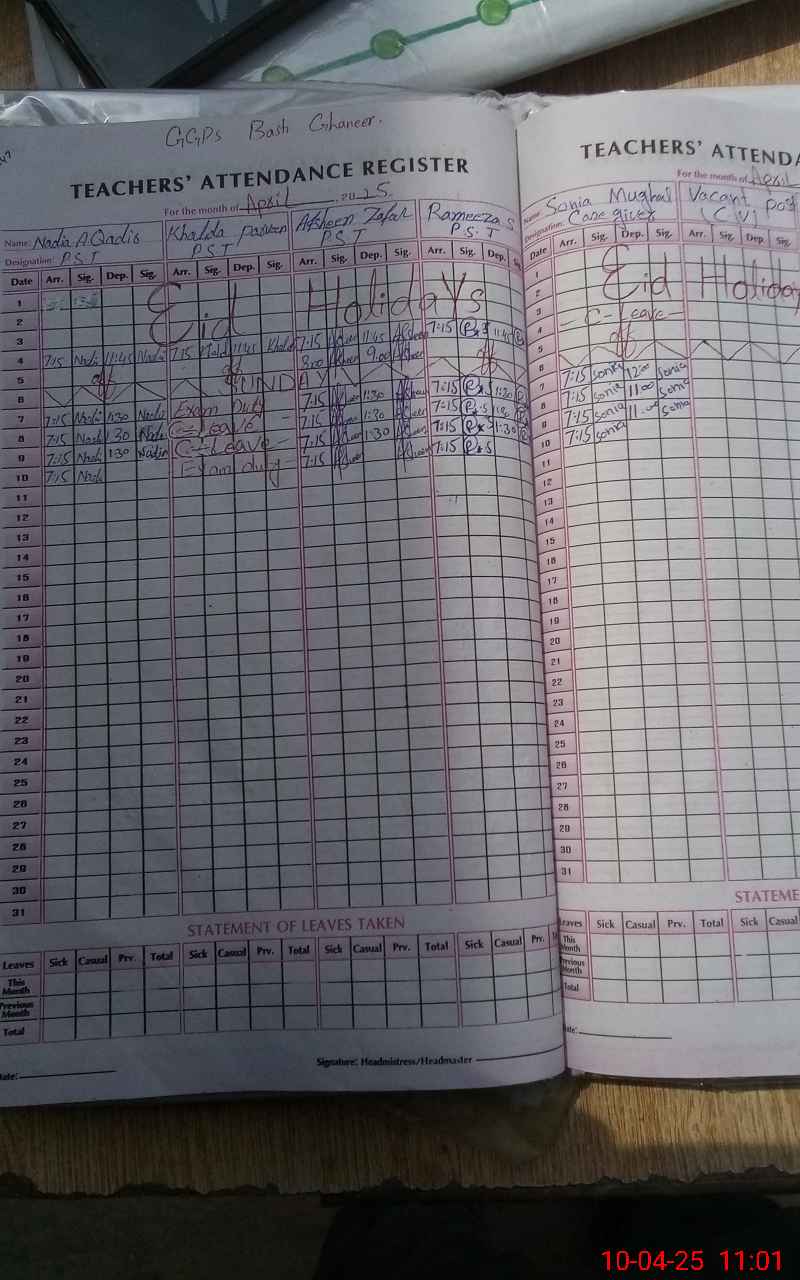 GGPs Bash Ghaneer.
TEACHERS' ATTENDANCE REGISTER
For the month of April 2025.
Name: Nadia A.Qadis Khalida Parveen Afsheen Zafar Rameeza S
Designation: P.S.T P.S.T P.S.T P.S.T
Date Arr. Sig. Dep. Sig. Arr. Sig. Dep. Sig. Arr. Sig. Dep. Sig. Arr. Sig. Dep.
1
2 Eid Holidays
3 7:15 11:45
4 7:15 Nadi 11:45 Nadia 7:15 Khalid 11:45 Khalid 7:15 11:45
5 8:00 9:00
6 SUNDAY
7 7:15 Nadi 1:30 Nadia Exam Duty 7:15 1:30 7:15 1:30
8 7:15 Nadi 1:30 Nadi C-Leave 7:15 1:30 7:15 1:30
9 7:15 Nadi 1:30 Nadia C-Leave 7:15 1:30 7:15 1:30
10 7:15 Nadi Exam duty 7:15 7:15
11
12
13
14
15
16
17
18
19
20
21
22
23
24
25
26
27
28
29
30
31
STATEMENT OF LEAVES TAKEN
Leaves Sick Casual Prv. Total Sick Casual Prv. Total Sick Casual Prv. Total Sick Casual Prv.
This Month
Previous Month
Total
Date:
Signature: Headmistress/Headmaster
TEACHERS' ATTENDA
For the month of April
Name: Sonia Mughal Vacant post
Designation: Care giver (CV)
Date Arr. Sig. Dep. Sig. Arr. Sig. Dep. Sig
1
2 Eid Holiday
3
4 - C-Leave -
5
6
7 7:15 Sonia 12:00 Sonia
8 7:15 sonia 11:00 Sonia
9 7:15 sonia 11:00 Sonia
10 7:15 sonia
11
12
13
14
15
16
17
18
19
20
21
22
23
24
25
26
27
28
29
30
31
STATEME
Leaves Sick Casual Prv. Total Sick Casual
This Month
Previous Month
Total
Date:
10-04-25 11:01